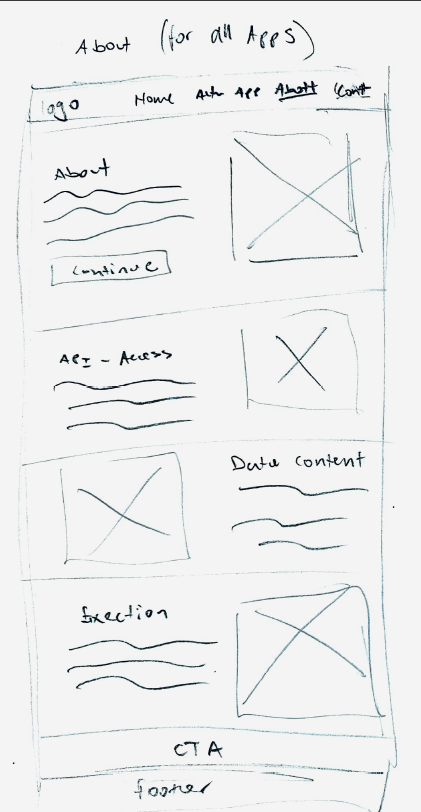 About (for all Apps)
logo Home Auth App About Cont
About
Continue
API - Access
Data content
Exection
CTA
footer